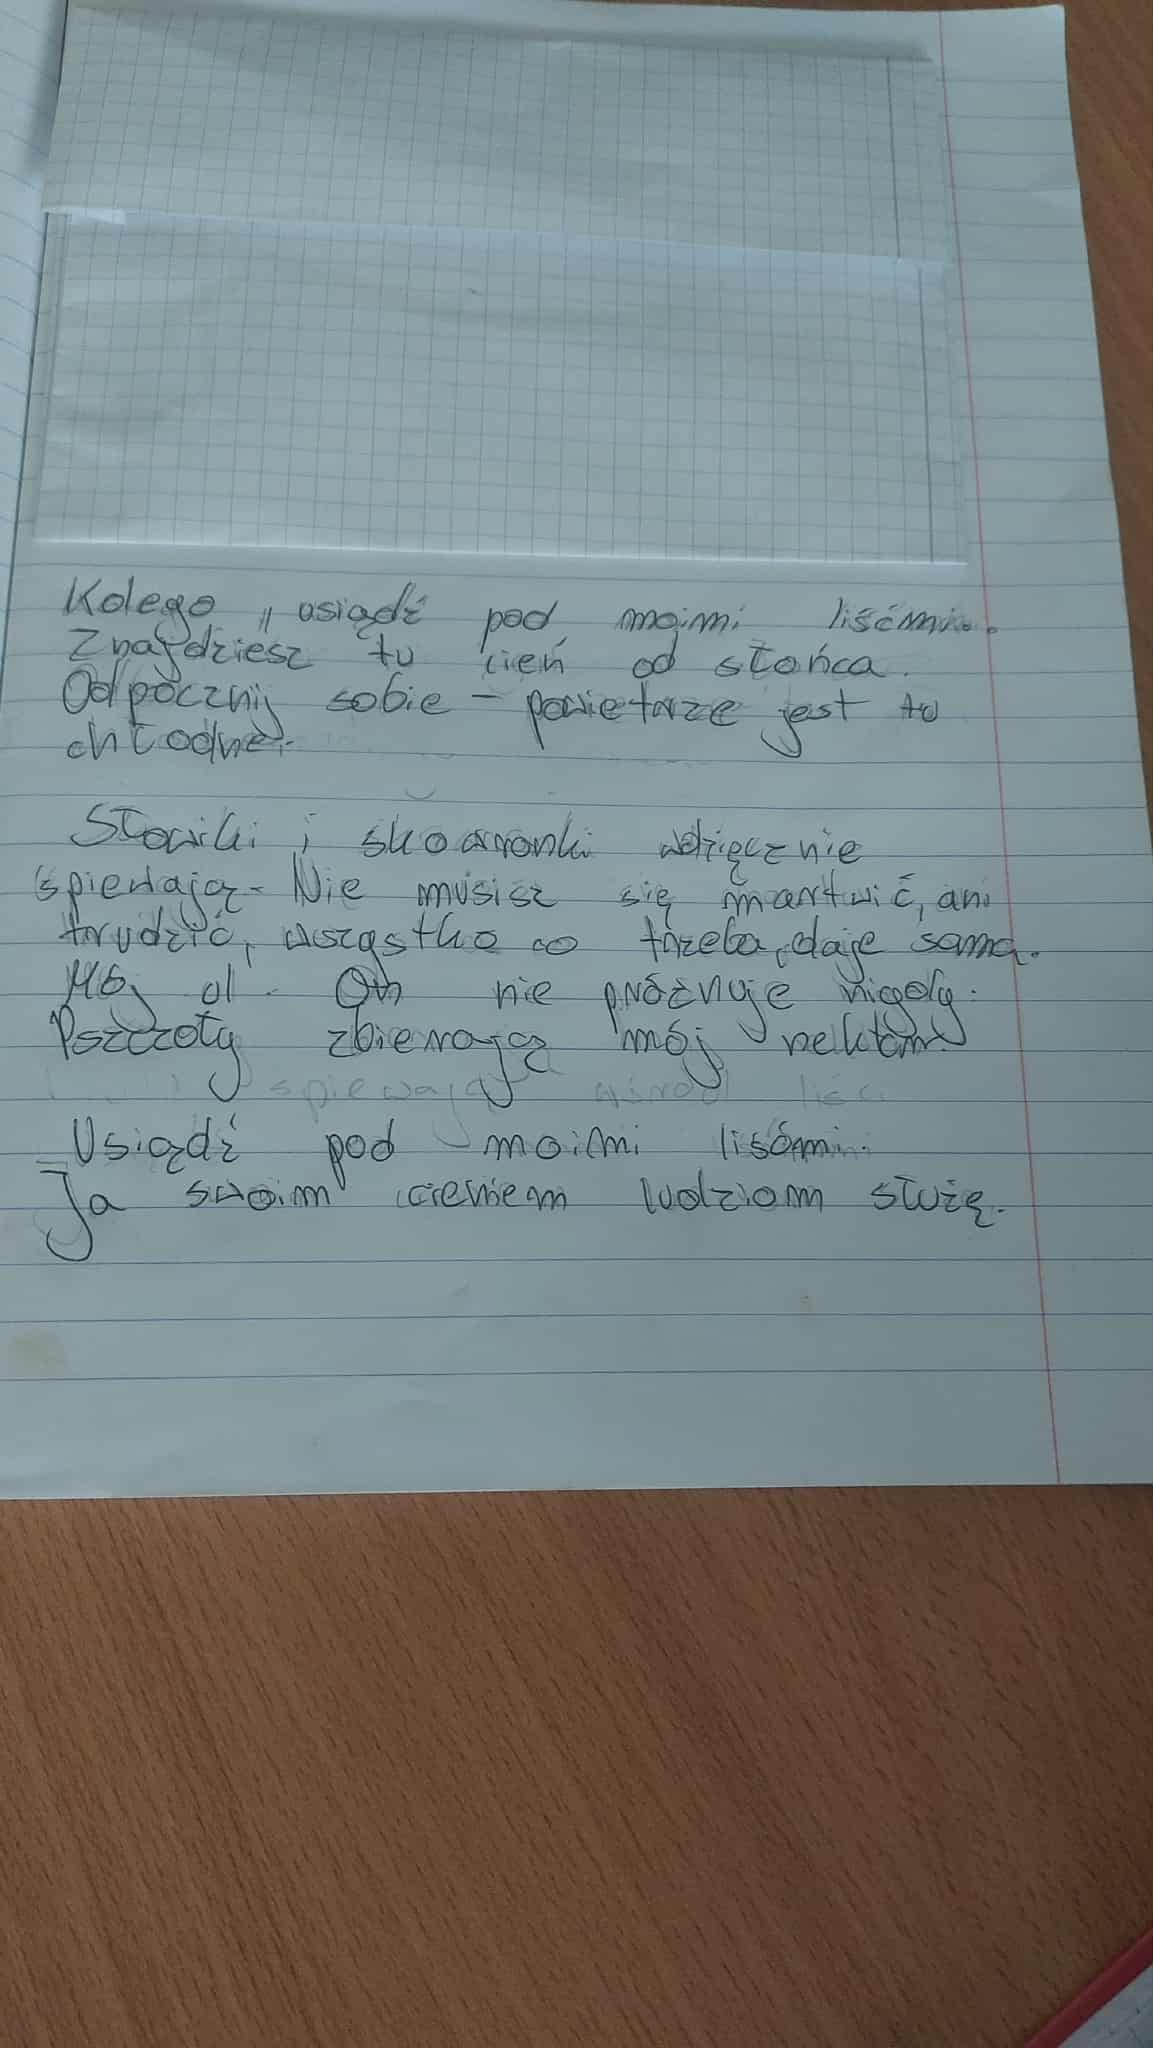 Kolego „ usiądź pod moimi liśćmi.
Znajdziesz tu cień od słońca.
Odpocznij sobie - powietrze jest tu
chłodne.
Słowiki i skowronki wdzięcznie
śpiewają - Nie musisz się martwić, ani
trudzić, wszystko co trzeba, daje sama.
Mój ul. On nie próżnuje nigdy.
Pszczoły zbierają mój nektar.
spiewają wśród liśc
Usiądź pod moimi lisćmi.
Ja swoim cieniem ludziom służę.